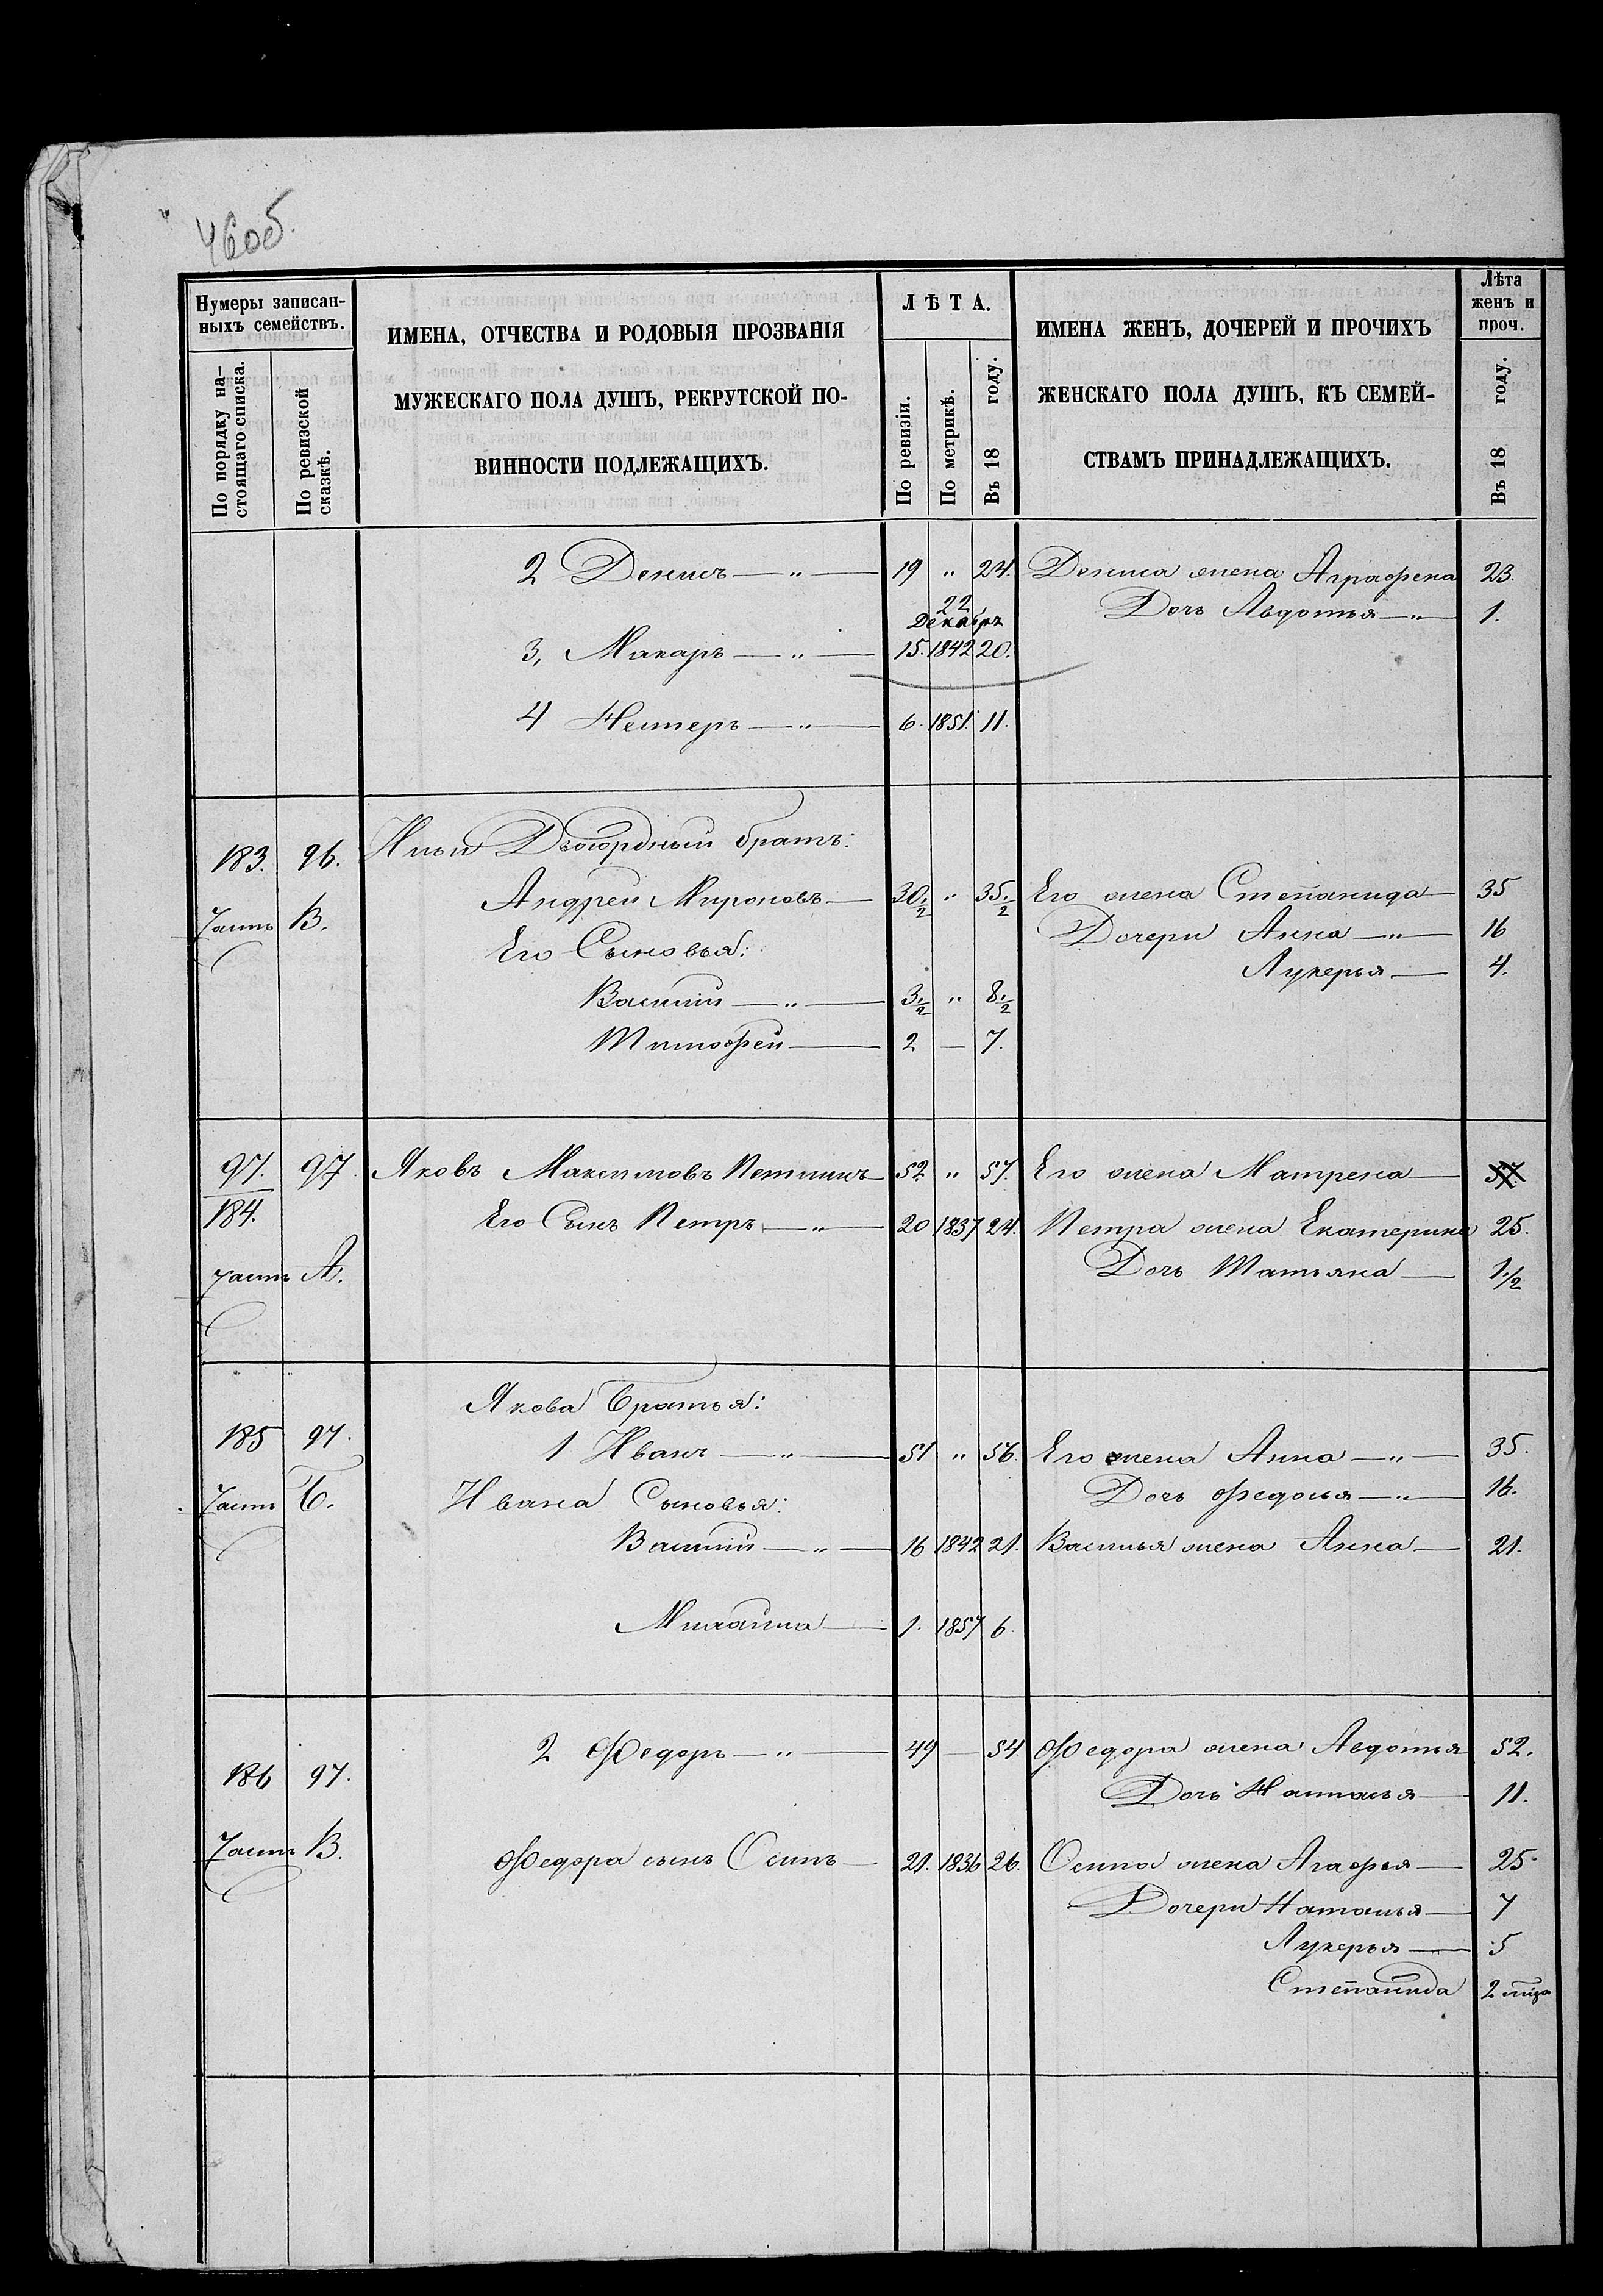 46об.
Нумеры записан-
ныхъ семействъ.
По порядку на-
стоящаго списка.
По ревизской
сказкѣ.
ИМЕНА, ОТЧЕСТВА И РОДОВЫЯ ПРОЗВАНІЯ
МУЖЕСКАГО ПОЛА ДУШЪ, РЕКРУТСКОЙ ПО-
ВИННОСТИ ПОДЛЕЖАЩИХЪ.
ЛѢТА.
По ревизіи.
По метрикѣ.
Въ 18 году.
ИМЕНА ЖЕНЪ, ДОЧЕРЕЙ И ПРОЧИХЪ
ЖЕНСКАГО ПОЛА ДУШЪ, КЪ СЕМЕЙ-
СТВАМЪ ПРИНАДЛЕЖАЩИХЪ.
Лѣта
женъ и
проч.
Въ 18 году.
2 Денисъ — „ — 19 „ 24. Дениса жена Аграфена 23.
22 Декабря
Дочь Авдотья — „ — 1.
3, Макаръ — „ — 15. 1842 20.
4 Нестеръ — „ — 6. 1851. 11.
183. 96. Ильи Двоюродный братъ:
Андрей Мироновъ — 30 1/2 „ 35 1/2 Его жена Степанида — 35
Часть В.
Его Сыновья:
Дочери Анна — „ — 16
Лукерья — 4.
Василий — „ — 3 1/2 „ 8 1/2
Тимофей — 2 — 7.
97. 97. Яковъ Максимовъ Петинъ 52. „ 57. Его жена Матрена —
184.
Его Сынъ Петръ — „ — 20 1837 24. Петра жена Екатерина 25.
Часть А.
Дочь Татьяна — 1 1/2
Якова Братья:
185 97.
1 Иванъ — „ — 51 „ 56. Его жена Анна — „ — 35.
Часть Б.
Ивана Сыновья:
Дочь Федосья — „ — 16.
Василий — „ — 16 1842 21. Василья жена Анна — 21.
Михаила — 1. 1857 6.
2 Федоръ — „ — 49 — 54 Федора жена Авдотья 52.
186 97.
Дочь Наталья — 11.
Часть В.
Федора сынъ Осипъ — 21. 1836 26. Осипа жена Агафья — 25.
Дочери Наталья — 7
Лукерья — 5
Степанида 2